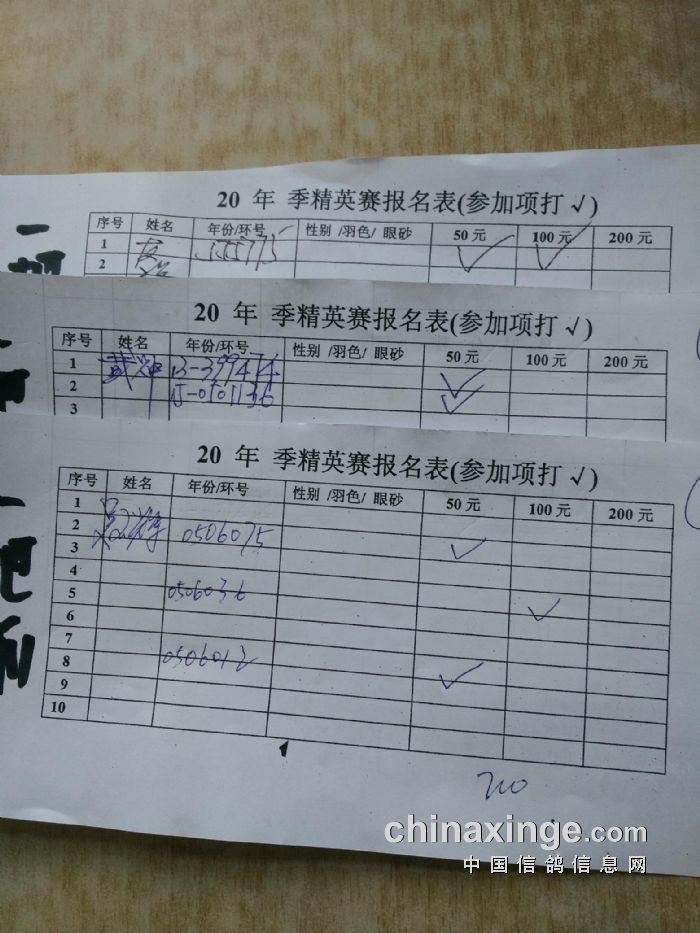 20 年 季精英赛报名表(参加项打 √)
序号 姓名 年份/环号 性别 /羽色/ 眼砂 50 元 100 元 200 元
1 √ √
2
20 年 季精英赛报名表(参加项打 √)
序号 姓名 年份/环号 性别 /羽色/ 眼砂 50 元 100 元 200 元
1 13-399474 √
2 15-0101136 √
3
20 年 季精英赛报名表(参加项打 √)
序号 姓名 年份/环号 性别 /羽色/ 眼砂 50 元 100 元 200 元
1
2
3 0506075 √
4
5 0506036
6 √
7
8 0506012 √
9
10
chinaxinge.com
中国信鸽信息网